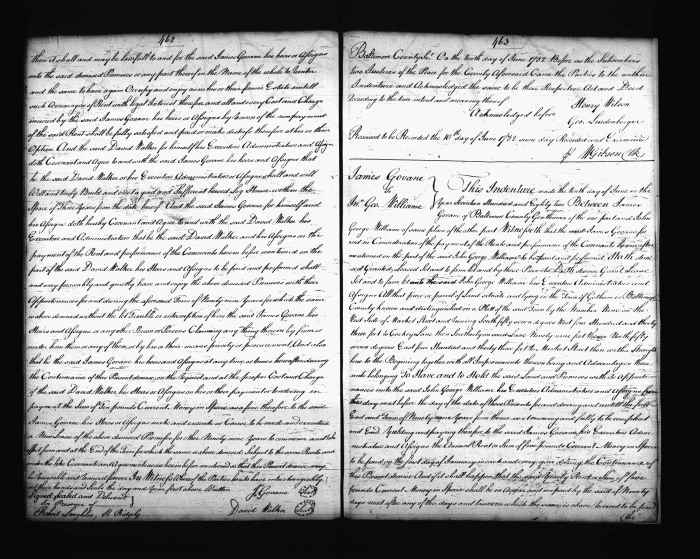 462
then it shall and may be lawfull to and for the said James Govane his heirs or Assigns
unto the said demised Premises or any part thereof in the Name of the whole to reenter
and the same to have again Occupy and enjoy as in his or their former Estate untill
such Arrearages of Rent with legal Interest therefor, and all and every Cost and Charge
incurred by the said James Govane his heirs or Assigns by reason of the non payment
of the said Rent shall be fully satisfied and paid or make distress therefor at his or their
Option And the said David Walker for himself his Executors Administrators and Assigns
doth Covenant and Agree to and with the said James Govane his heirs and Assigns that
he the said David Walker or his Executors Administrators or Assigns shall and will
Well and truly Build and erect a good and Sufficient hewed Log House within the
Space of three Years from the date hereof And the said James Govane for himself and
his Assigns doth hereby Covenant and Agree to and with the said David Walker his
Executors and Administrators that he the said David Walker and his Assigns on the
payment of the Rent and performance of the Covenants herein before mentioned on the
part of the said David Walker his Heirs and Assigns to be paid and performed shall
and may peaceably and quietly have and enjoy the above demised Premises with their
Appurtenances for and during the aforesaid Term of Ninety nine Years for which the same
is above demised without the let Trouble or interruption of him the said James Govane his
Heirs and Assigns or any other Person or Persons Claiming any thing therein by from or
under him them or any of them or by his or their means privity or procurement, And also
that he the said James Govane his heirs and Assigns at any time or times hereafter during
the Continuance of this Present demise, on the request and at the proper Cost and Charge
of the said David Walker, his Heirs or Assigns on his or their payment or tendering in
payment the Sum of Ten pounds Current Money in Specie as a fine therefor to the said
James Govane his Heirs or Assigns make and execute or Cause to be made and executed
a New Lease of the above demised Premises for other Ninety nine Years to commence and take
effect from and at the End of the Term for which the same is above demised Subject to the same Rents and
under the like Covenants and Agreements as are herein before mentioned so that this Present demise may
be renewable and renewed forever. In Witness Whereof the Parties hereto have interchangeably
set their hands and Seals the day and Year first above Written
Signed sealed and Delivered
in Presence of
J. Govane
Robert Laughlin M. Ridgely David Walker
463
Baltimore County Sc. On the tenth day of June 1782 Before us the Subscribers
two Justices of the Peace for the County Aforesaid Came the Parties to the within
Indenture and Acknowledged the same to be their Respective Act and Deed
According to the true intent and meaning thereof
Henry Wilson
Acknowledged before
Geo. Lindenberger
Received to be Recorded the 10th day of June 1782 same day Recorded and Examined
Wm Gibson Clk
James Govane
to
Jno Geo. Williams
This Indenture made the tenth day of June in the
Year Seventeen Hundred and Eighty two Between James
Govane of Baltimore County Gentleman of the one part and John
George Williams of same place of the other part Witnesseth that the said James Govane for
and in Consideration of the payment of the Rents and performance of the Covenants herein after
mentioned on the part of the said John George Williams to be paid and performed Hath demi-
sed Granted, Leased Set and to farm let and by these Presents Doth demise Grant Lease
Set and to farm let unto the said John George Williams his Executors Administrators and
Assigns All that piece or parcel of Land situate and lying in the Town of Gotham in Baltimore
County known and distinguished on a Plott of the said Town by the Number Nine on the
West side of Market Street and having South fifty seven degrees West four Hundred and thirty
three feet to Cocksey Lane then Southerly on said Lane Ninety nine feet thence North fifty
seven degrees East four Hundred and thirty three feet to Market Street then with a Straight
line to the Beginning together with all Improvements thereon being and Advantages there-
unto belonging To Have and to Hold the said Land and Premises with the Appurte-
nances unto the said John George Williams his Executors Administrators and Assigns from
the day next before the day of the date of these Presents for and during and untill the full
End and Term of Ninety nine Years from thence next ensuing and fully to be compleated
and End Yielding and paying therefor to the said James Govane his Executors Admi-
nistrators and Assigns the Annual Rent or Sum of five pounds Current Money in Specie
to be paid on the first day of January in each and every year during the Continuance of
this Present demise And if it shall happen that the said Yearly Rent or Sum of five
pounds Current Money in Specie shall be in Arrear and unpaid by the space of Ninety
days next after any of the days and times on which the same is above reserved to be paid